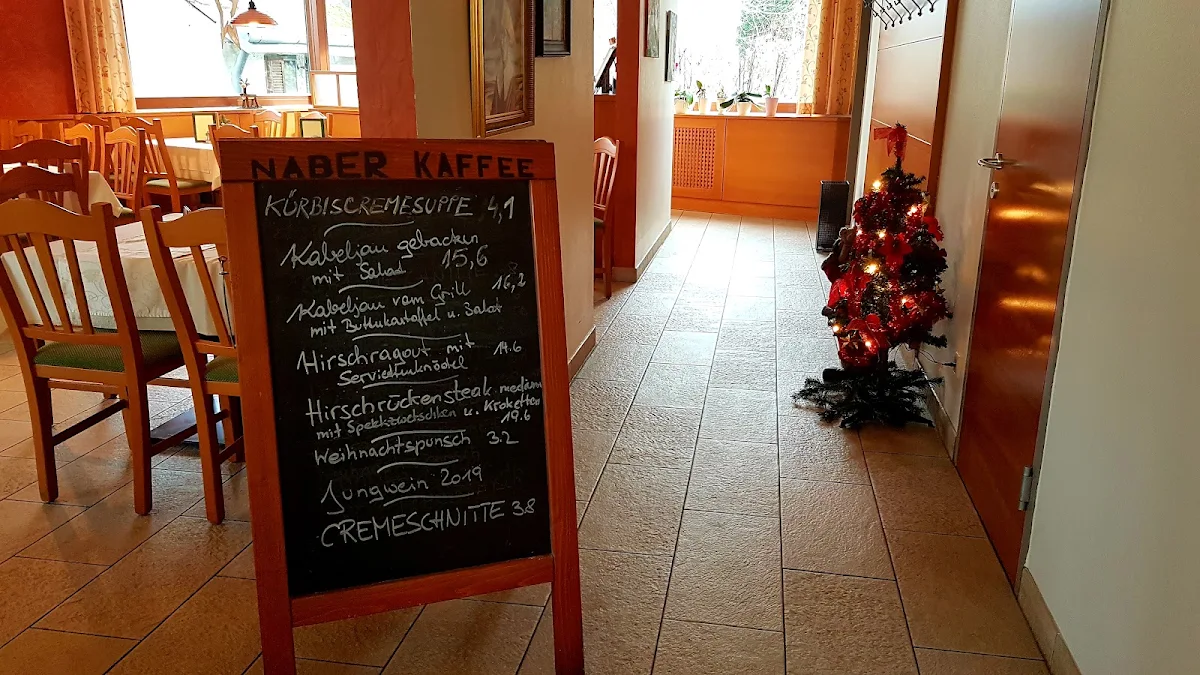 NABER KAFFEE
KÜRBISCREMESUPPE 4,1
Kabeljau gebacken
mit Salat 15,6
Kabeljau vom Grill 16,2
mit Butterkartoffel u. Salat
Hirschragout mit 14.6
Serviettenknödel
Hirschrückensteak medium
mit Speckzwetschken u. Kroketten
19.6
Weihnachtspunsch 3.2
Jungwein 2019
CREMESCHNITTE 3.8